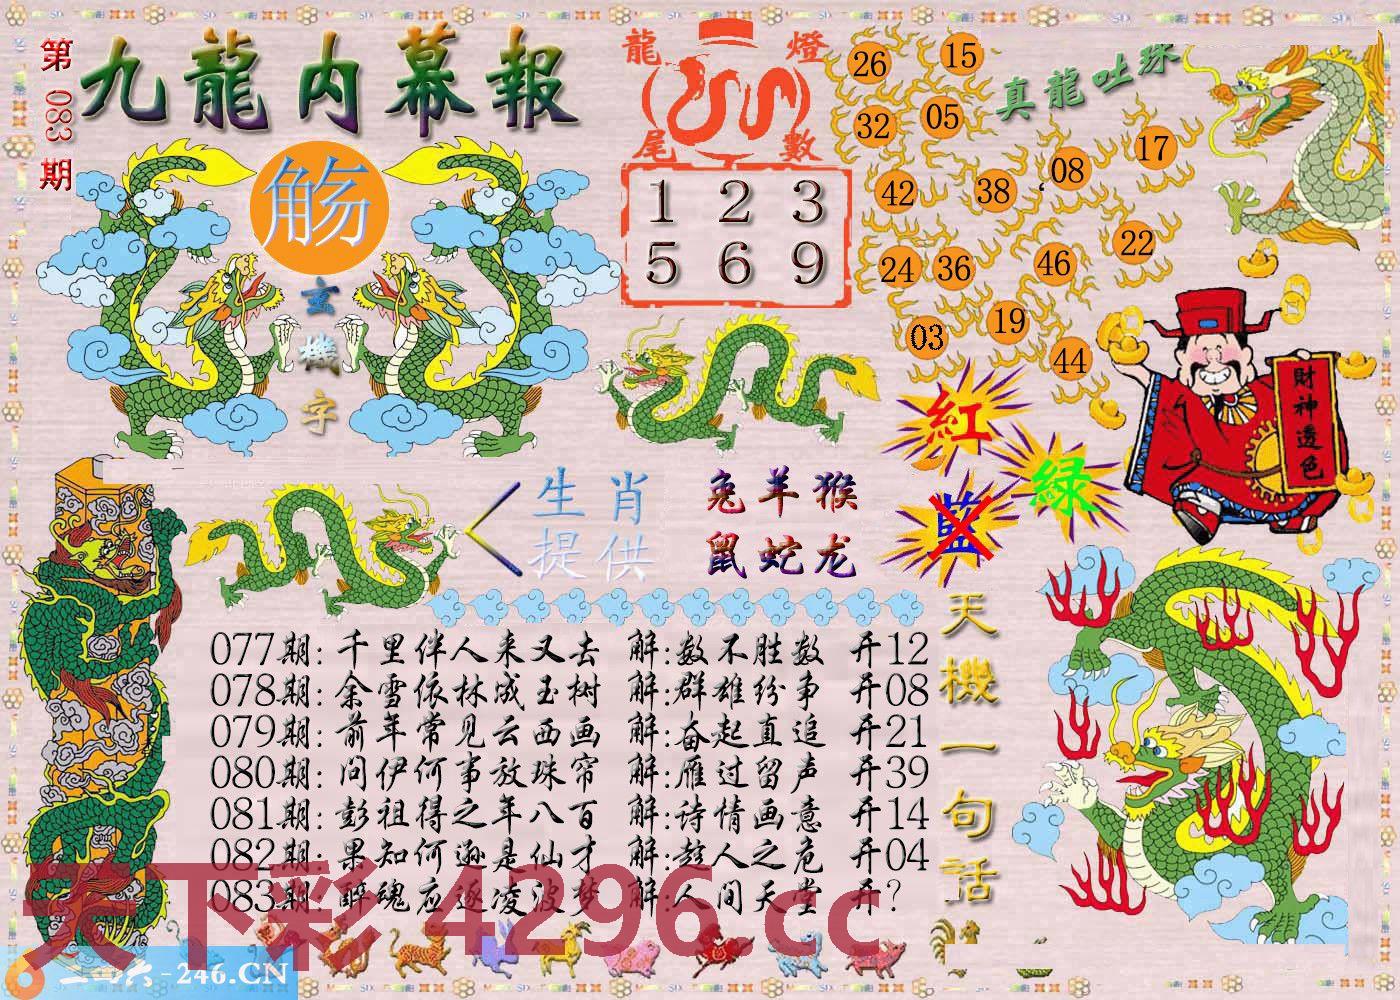 第083期
九龍内幕報
觞
玄機字
龍燈
尾數
1 2 3
5 6 9
真龍吐珠
26 15
32 05
42 38 08 17
24 36 46 22
03 19 44
財神透色
紅
綠
藍
生肖
提供
兔羊猴
鼠蛇龙
077期: 千里伴人来又去 解:数不胜数 开12
078期: 余雪依林成玉树 解:群雄纷争 开08
079期: 前年常见云西画 解:奋起直追 开21
080期: 问伊何事放珠帘 解:雁过留声 开39
081期: 彭祖得之年八百 解:诗情画意 开14
082期: 果知何逊是仙才 解:趁人之危 开04
083期: 醉魂应逐凌波梦 解:人间天堂 开?
天機一句话
天下彩 4296.cc
二四六-246.CN